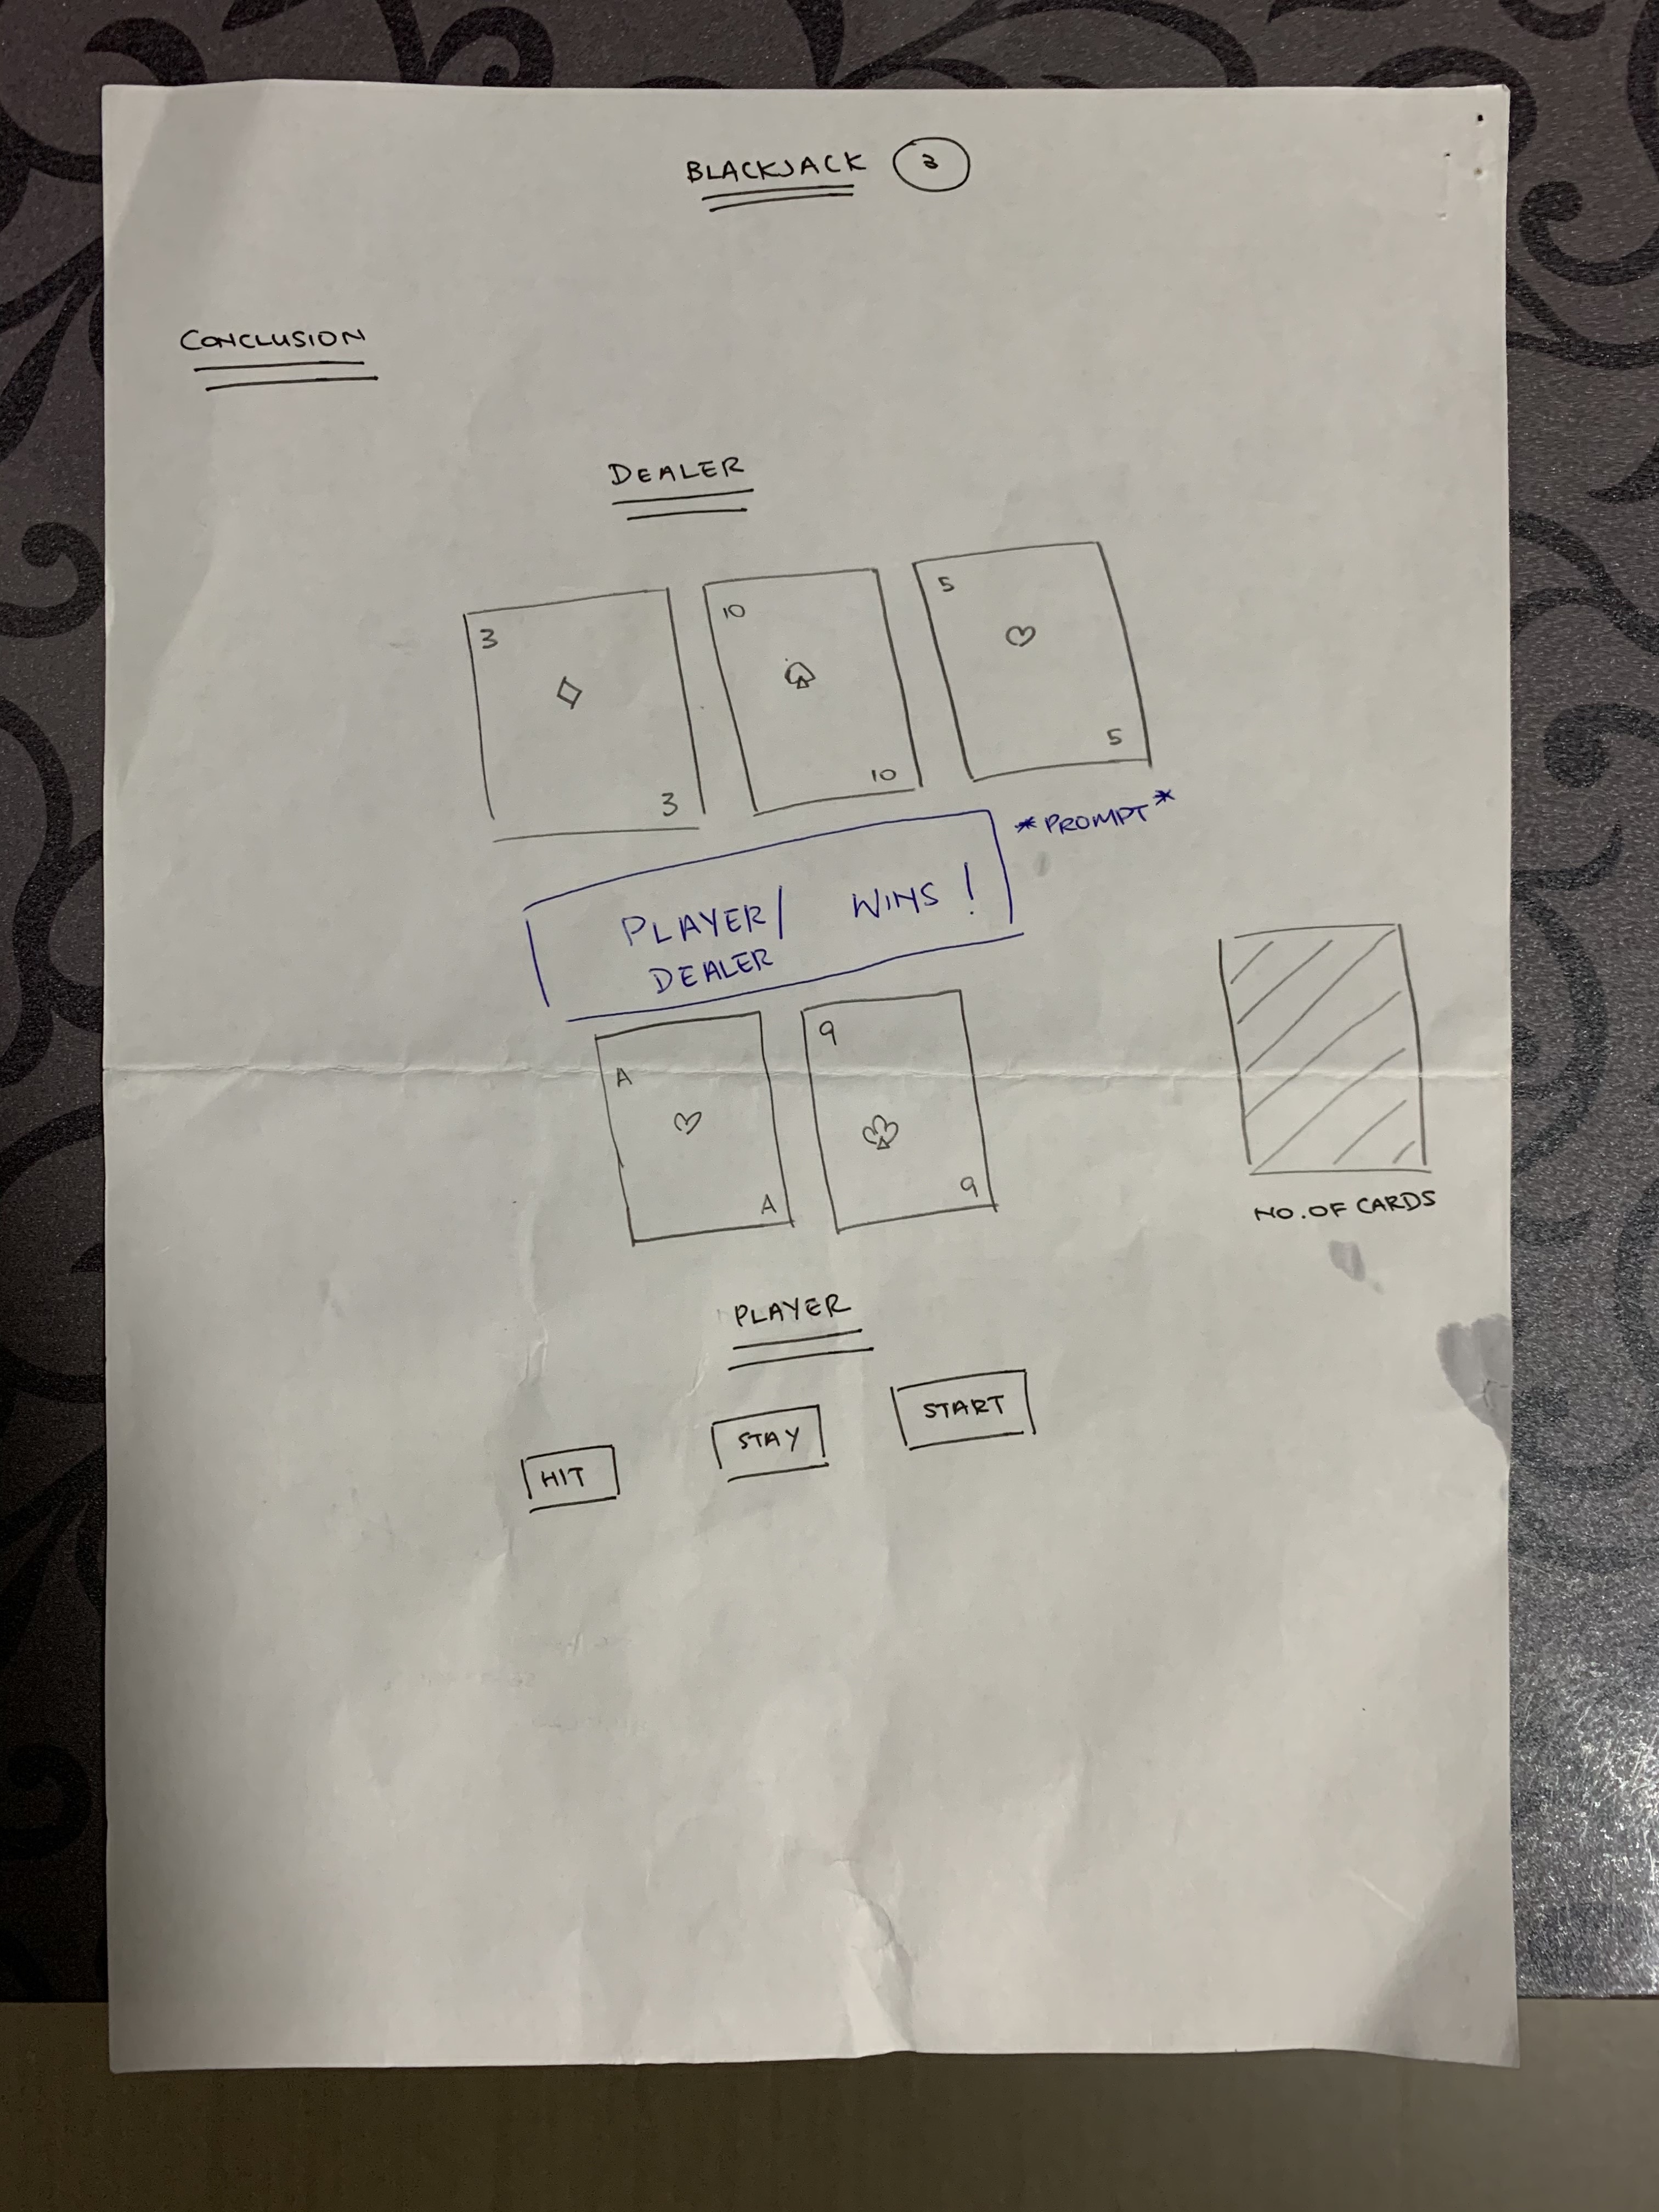 BLACKJACK 3
CONCLUSION
DEALER
3
10
5
3
10
5
*PROMPT*
PLAYER/ WINS!
DEALER
A
9
A
9
NO. OF CARDS
PLAYER
HIT
STAY
START